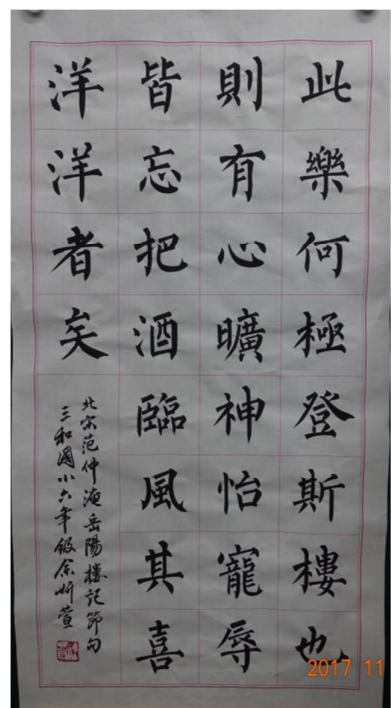 此樂何極登斯樓也
則有心曠神怡寵辱
皆忘把酒臨風其喜
洋洋者矣
北宋范仲淹岳陽樓記節句
三和國小六年級余昕萱
2017 11